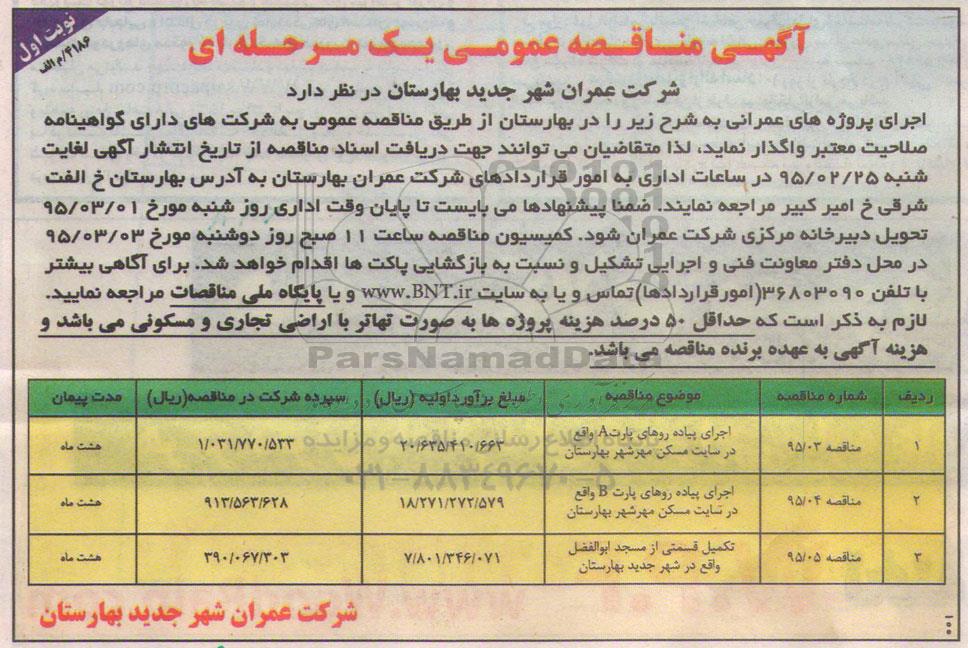 نوبت اول
۴۱۸۶/م الف
آگهـی مناقصه عمومی یک مرحله ای
شرکت عمران شهر جدید بهارستان در نظر دارد
اجرای پروژه های عمرانی به شرح زیر را در بهارستان از طریق مناقصه عمومی به شرکت های دارای گواهینامه
صلاحیت معتبر واگذار نماید، لذا متقاضیان می توانند جهت دریافت اسناد مناقصه از تاریخ انتشار آگهی لغایت
شنبه ۹۵/۰۲/۲۵ در ساعات اداری به امور قراردادهای شرکت عمران بهارستان به آدرس بهارستان خ الفت
شرقی خ امیر کبیر مراجعه نمایند. ضمناً پیشنهادها می بایست تا پایان وقت اداری روز شنبه مورخ ۹۵/۰۳/۰۱
تحویل دبیرخانه مرکزی شرکت عمران شود. کمیسیون مناقصه ساعت ۱۱ صبح روز دوشنبه مورخ ۹۵/۰۳/۰۳
در محل دفتر معاونت فنی و اجرایی تشکیل و نسبت به بازگشایی پاکت ها اقدام خواهد شد. برای آگاهی بیشتر
با تلفن ۳۶۸۰۳۰۹۰(امورقراردادها)تماس و یا به سایت www.BNT.ir و یا پایگاه ملی مناقصات مراجعه نمایید.
لازم به ذکر است که حداقل ۵۰ درصد هزینه پروژه ها به صورت تهاتر با اراضی تجاری و مسکونی می باشد و
هزینه آگهی به عهده برنده مناقصه می باشد.
ParsNamadData
ردیف شماره مناقصه موضوع مناقصه مبلغ برآورداولیه (ریال) سپرده شرکت در مناقصه(ریال) مدت پیمان
۱ مناقصه ۹۵/۰۳ اجرای پیاده روهای پارت A واقع در سایت مسکن مهرشهر بهارستان ۲۰/۶۳۵/۴۱۰/۶۶۳ ۱/۰۳۱/۷۷۰/۵۳۳ هشت ماه
۲ مناقصه ۹۵/۰۴ اجرای پیاده روهای پارت B واقع در سایت مسکن مهرشهر بهارستان ۱۸/۲۷۱/۲۷۲/۵۷۹ ۹۱۳/۵۶۳/۶۲۸ هشت ماه
۳ مناقصه ۹۵/۰۵ تکمیل قسمتی از مسجد ابوالفضل واقع در شهر جدید بهارستان ۷/۸۰۱/۳۴۶/۰۷۱ ۳۹۰/۰۶۷/۳۰۳ هشت ماه
پایگاه اطلاع رسانی مناقصه و مزایده
۰۲۱-۸۸۳۴۹۶۷۰-۵
شرکت عمران شهر جدید بهارستان
۱۰۰